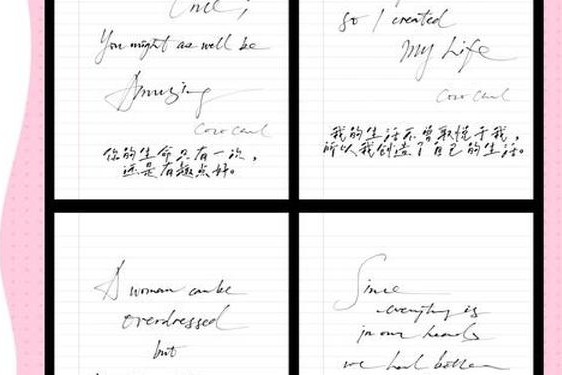 You might as well be
Amusing
Coco Chanel
你的生命只有一次，
还是有趣点好。
so I created
My Life
Coco Chanel
我的生活不曾取悦于我，
所以我创造了自己的生活。
A woman can be
overdressed
but
Since
everything is
in our heads
we had better